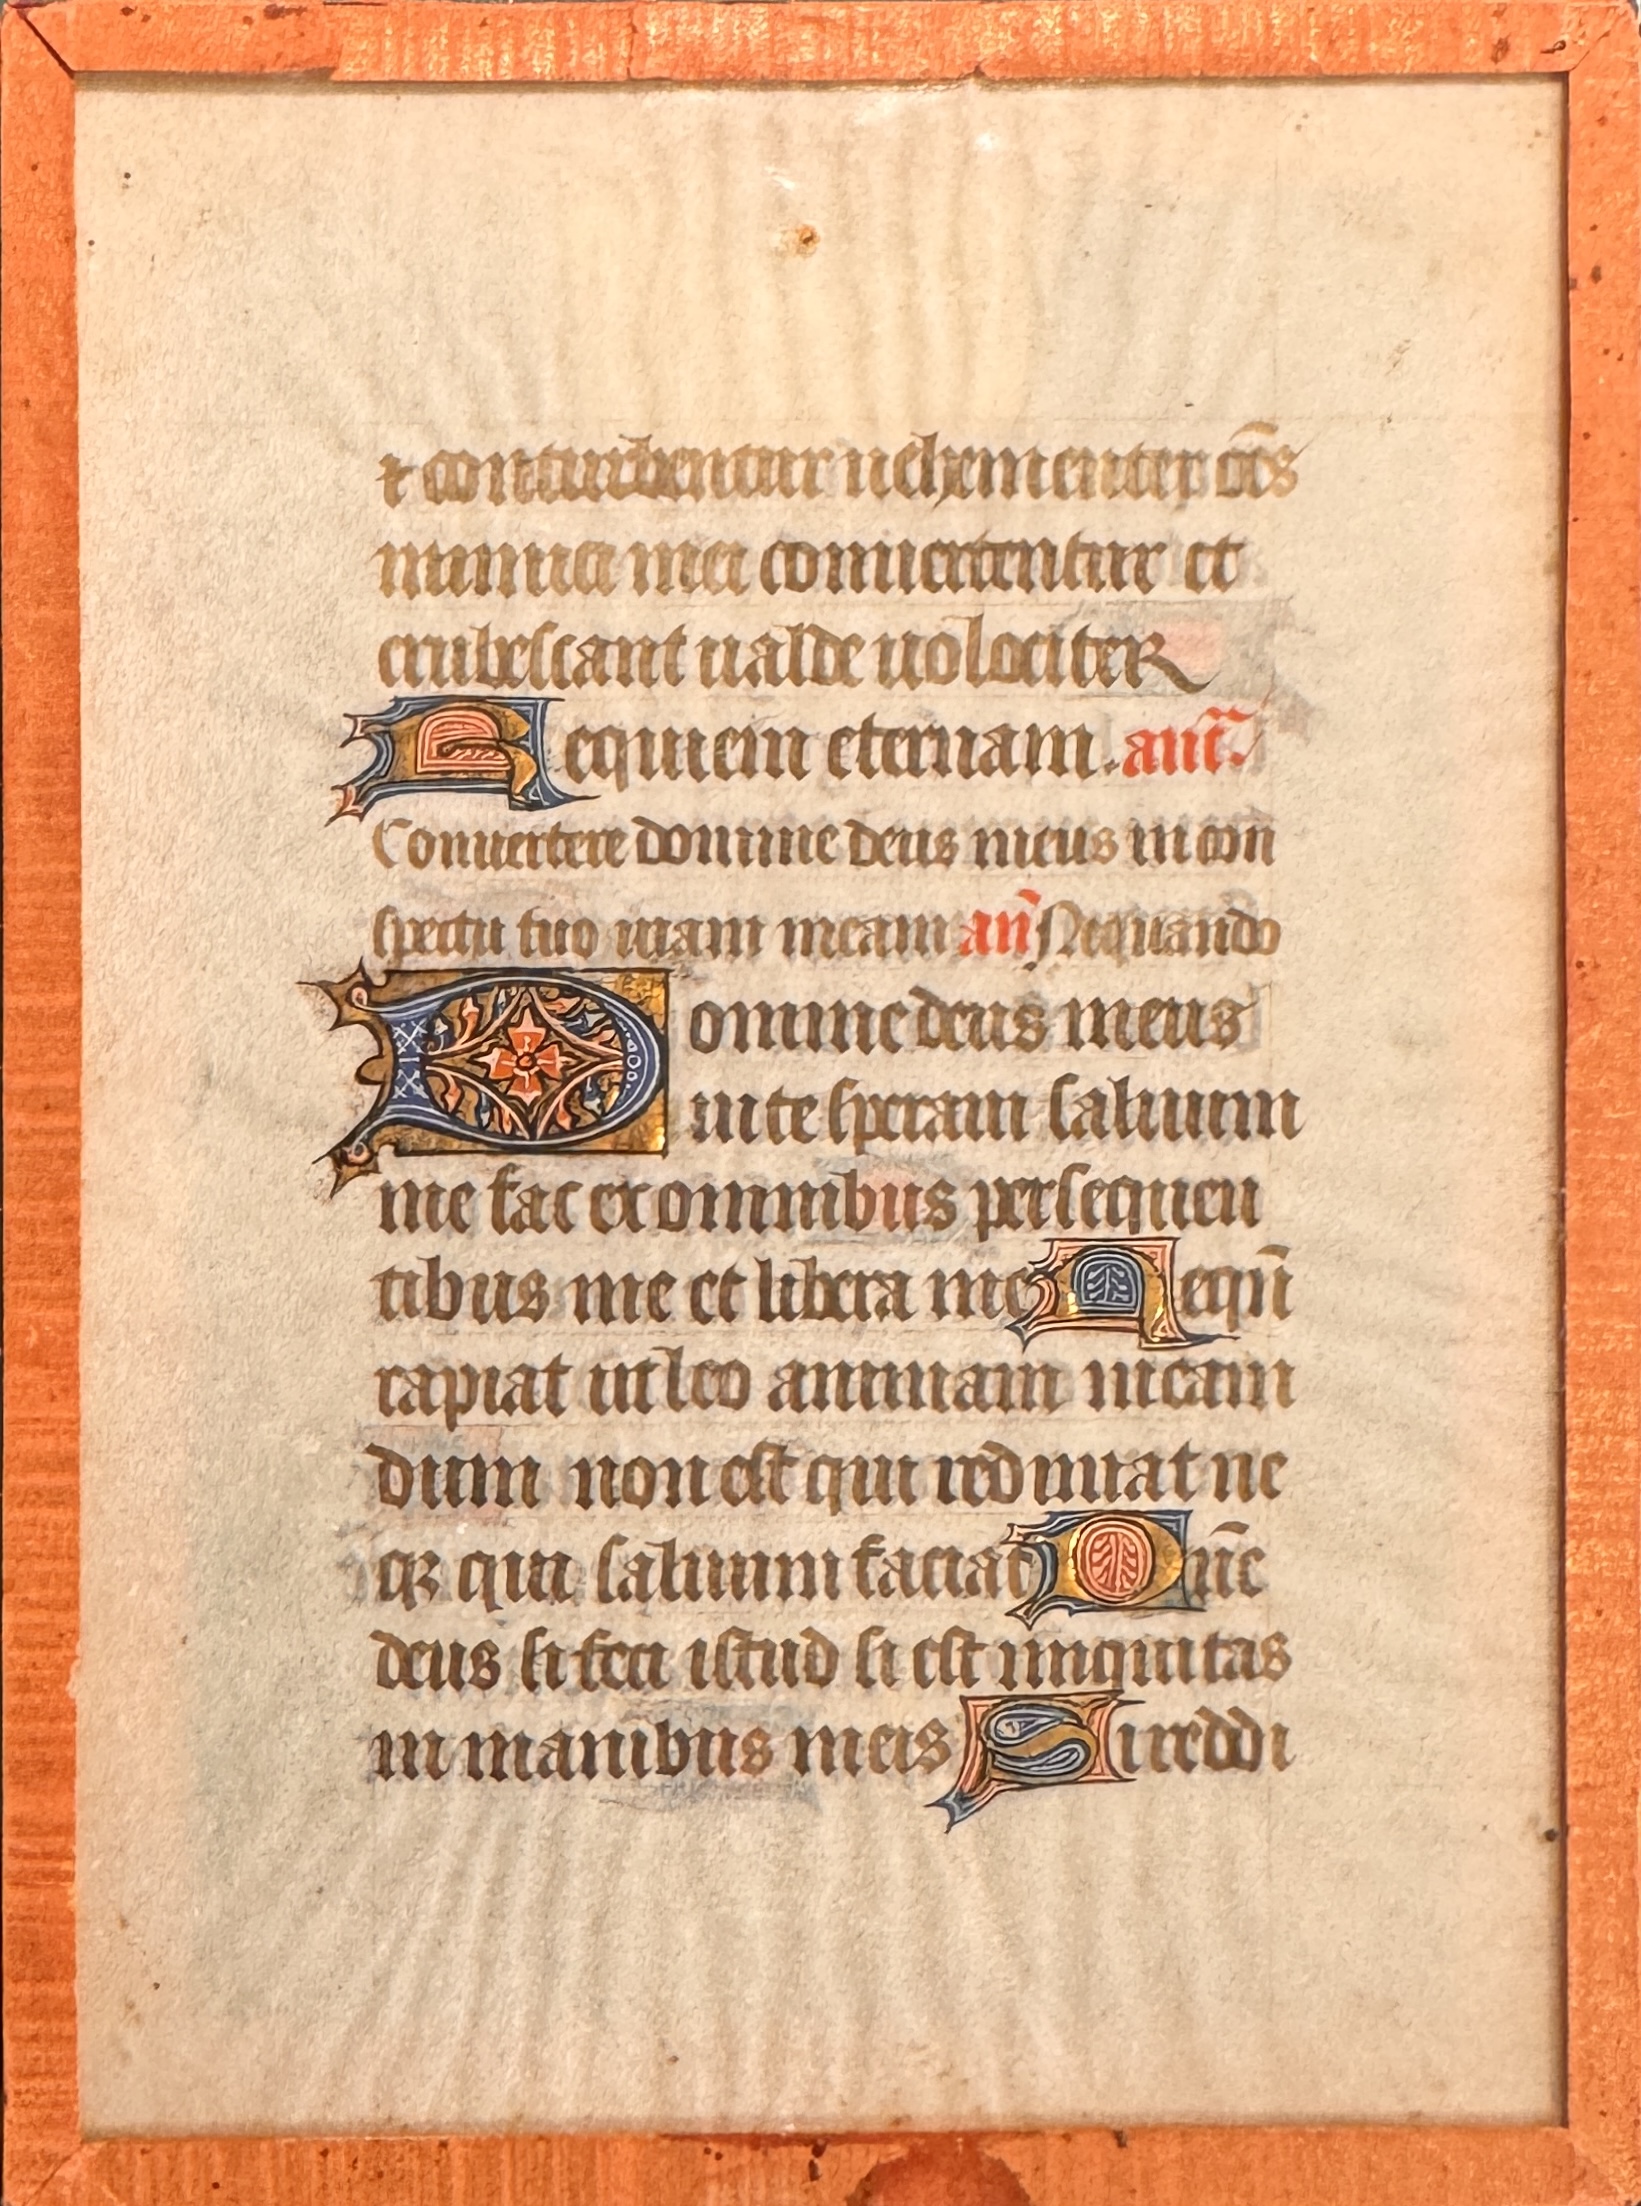 ⁊ conturbentur uehementer oēs
inimici mei conuertentur et
erubescant ualde uolociter
Requiem eternam. añt.
Conuertere domine deus meus in con
spectu tuo uiam meam añ Nequando
Domine deus meus
in te speraui saluum
me fac ex omnibus persequen
tibus me et libera me Nequñ
rapiat ut leo animam meam
dum non est qui redimat ne
qꝫ qui saluum faciat Dñe
deus si feci istud si est iniquitas
in manibus meis Si reddi